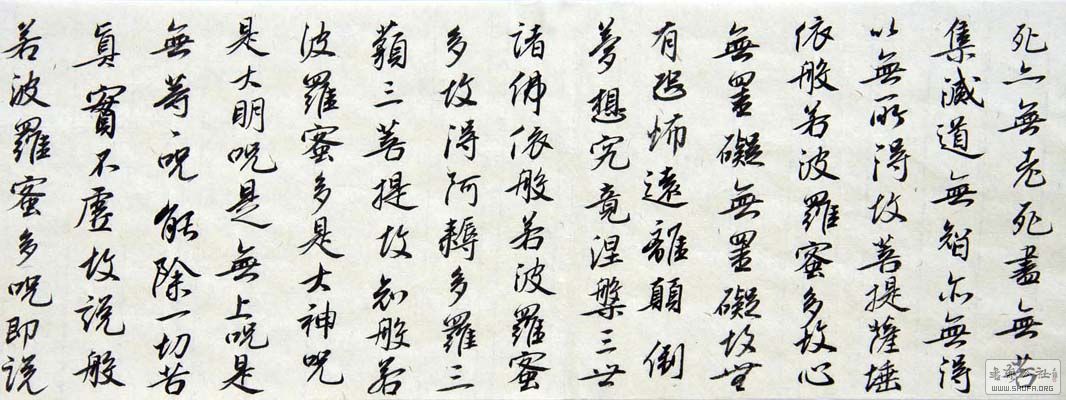 死亦無老死盡無苦
集滅道無智亦無得
以無所得故菩提薩埵
依般若波羅蜜多故心
無罣礙無罣礙故無
有恐怖遠離顛倒
夢想究竟涅槃三世
諸佛依般若波羅蜜
多故得阿耨多羅三
藐三菩提故知般若
波羅蜜多是大神呪
是大明呪是無上呪是
無等々呪能除一切苦
眞實不虛故說般
若波羅蜜多呪即說
WWW.SHUFA.ORG